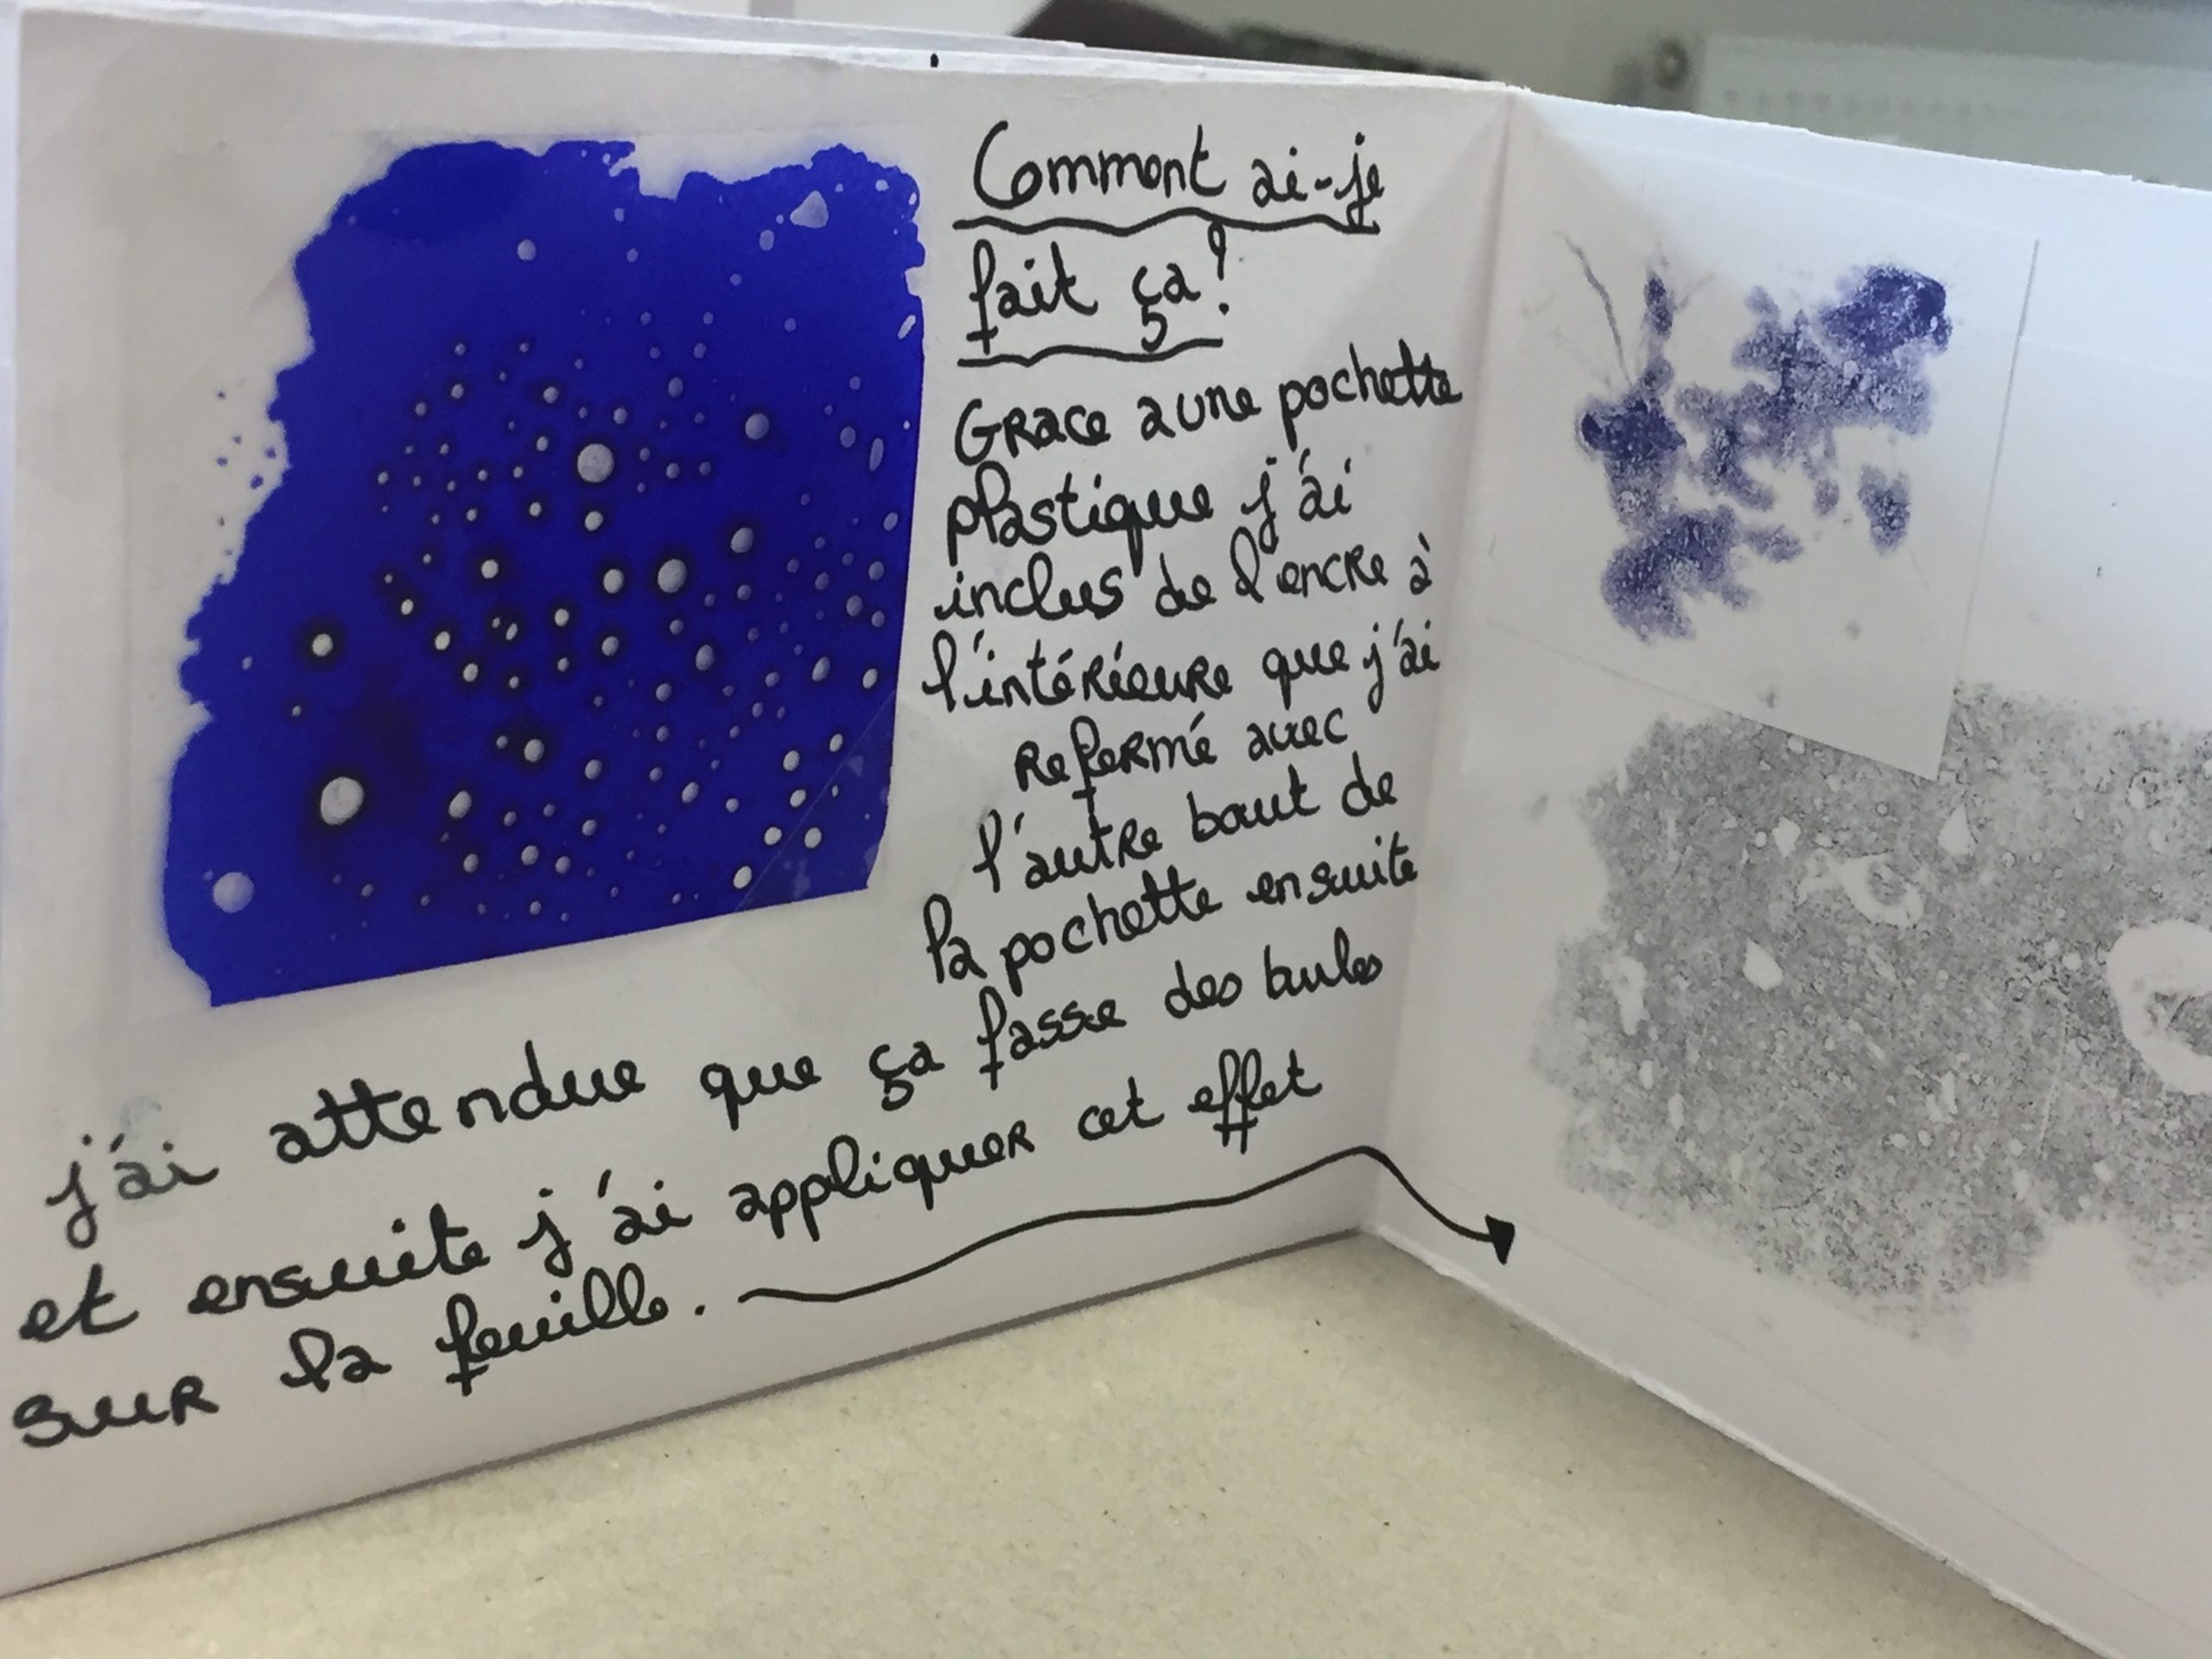 Comment ai-je
fait ça?
GRace a une pochette
plastique j'ai
inclus de l'encre à
l'intérieure que j'ai
Refermé avec
l'autre bout de
la pochette ensuite
j'ai attendue que ça fasse des bules
et ensuite j'ai appliquer cet effet
sur la feuille.